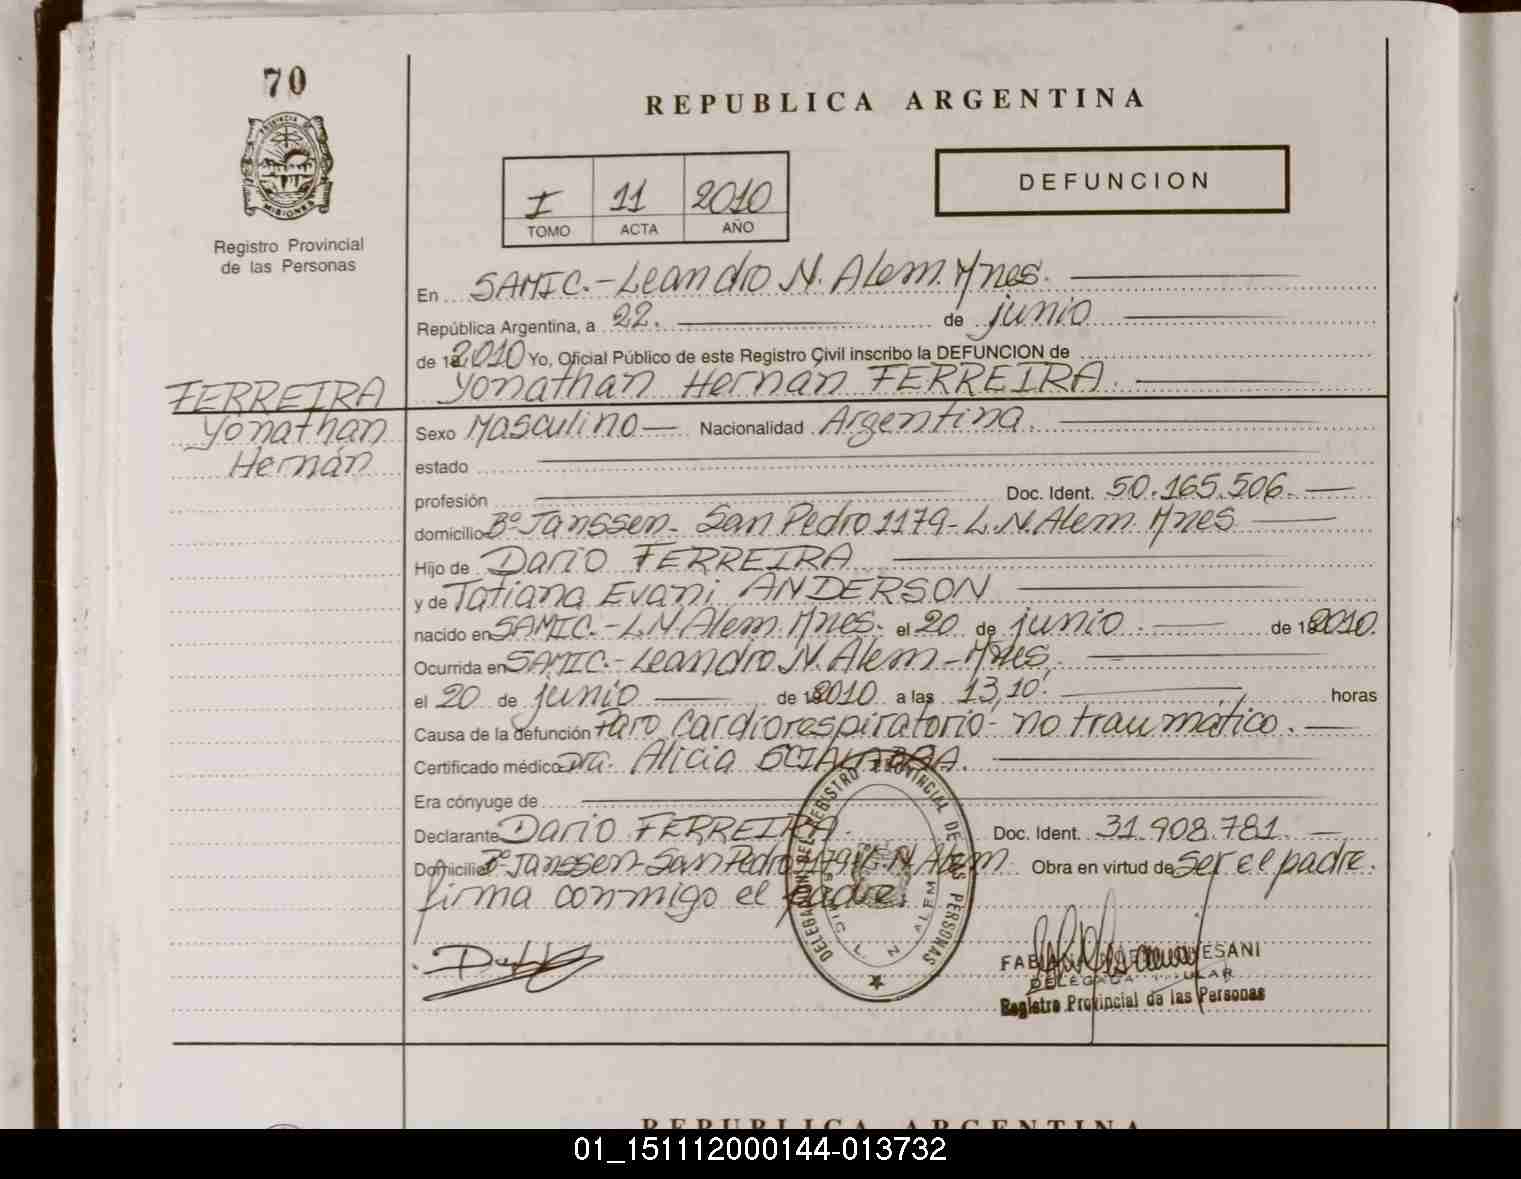 70
PROVINCIA DE
MISIONES
Registro Provincial
de las Personas
REPUBLICA ARGENTINA
I 11 2010
TOMO ACTA AÑO
DEFUNCION
En SAMIC.-Leandro N. Alem. Mnes.
República Argentina, a 22. de junio
de 2010 Yo, Oficial Público de este Registro Civil inscribo la DEFUNCION de
Yonathan Hernan FERREIRA.
FERREIRA
Yonathan
Hernán
Sexo Masculino Nacionalidad Argentina.
estado
profesión Doc. Ident. 50.165.506.
domicilio Bº Janssen- San Pedro 1179-L.N.Alem. Mnes
Hijo de Dario FERREIRA
y de Tatiana Evani ANDERSON
nacido en SAMIC.-L.N.Alem. Mnes. el 20 de junio. de 2010.
Ocurrida en SAMIC.-Leandro N. Alem-Mnes.
el 20 de junio de 2010 a las 13,10. horas
Causa de la defunción Paro Cardiorespiratorio- no traumático.
Certificado médico Dra. Alicia
Era cónyuge de
Declarante Dario FERREIRA. Doc. Ident. 31.908.781.
Domicilio Bº Janssen-San Pedro 1179-L.N.Alem. Obra en virtud de Ser el padre.
firma conmigo el padre.
DELEGACION DEL REGISTRO PROVINCIAL DE LAS PERSONAS
L. N ALEM
ESANI
Registro Provincial de las Personas
REPUBLICA ARGENTINA
01_151112000144-013732